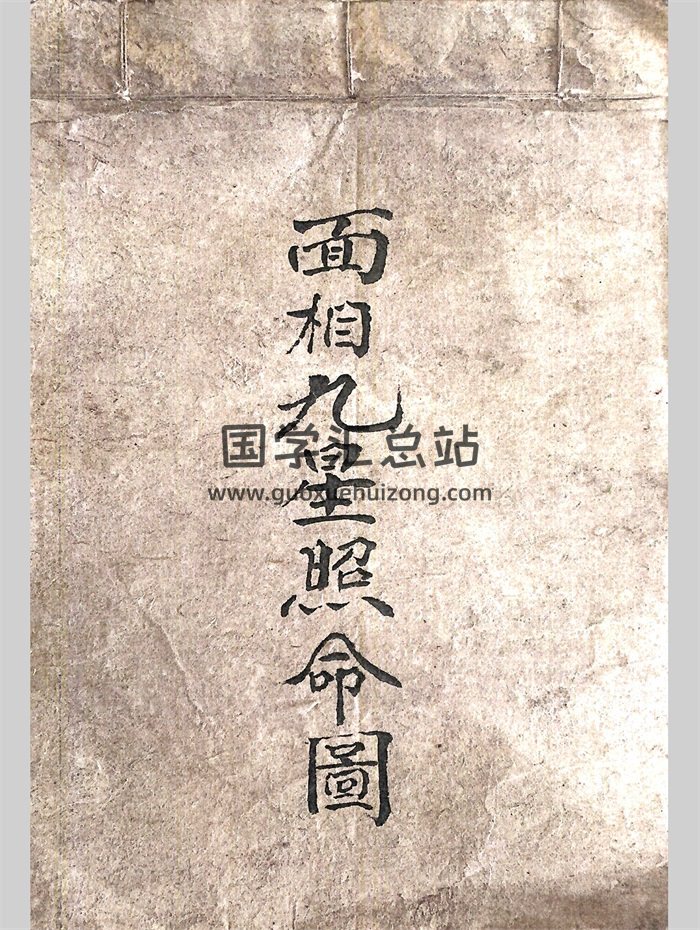 面相九星照命圖
国学汇总站
www.guoxuehuizong.com